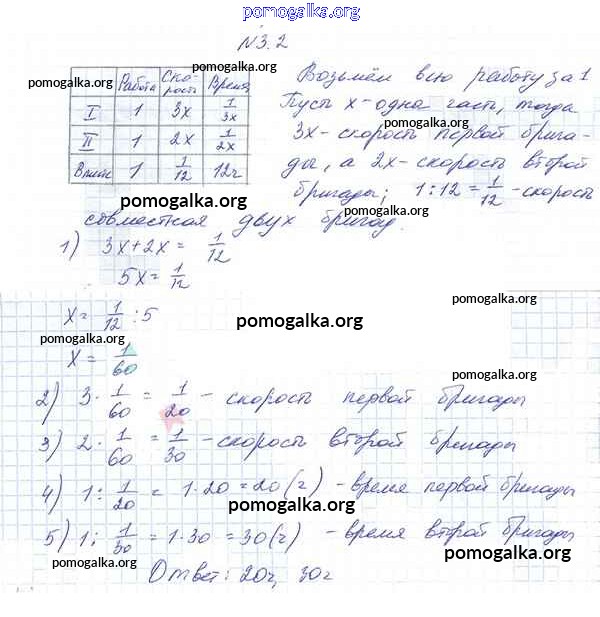 pomogalka.org
№3.2
Работа Ско-рость Время
I 1 3x 1/3x
II 1 2x 1/2x
Вместе 1 1/12 12ч
Возьмём всю работу за 1
Пусть x - одна часть, тогда
3x - скорость первой брига-
ды, а 2x - скорость второй
бригады; 1:12 = 1/12 - скорость
совместная двух бригад.
pomogalka.org
pomogalka.org
pomogalka.org
pomogalka.org
pomogalka.org
1) 3x+2x = 1/12
5x = 1/12
x = 1/12 : 5
pomogalka.org
pomogalka.org
pomogalka.org
x = 1/60
pomogalka.org
2) 3 · 1/60 = 1/20 - скорость первой бригады
3) 2 · 1/60 = 1/30 - скорость второй бригады
4) 1 : 1/20 = 1·20 = 20 (ч) - время первой бригады
pomogalka.org
5) 1 : 1/30 = 1·30 = 30 (ч) - время второй бригады
pomogalka.org
pomogalka.org
Ответ: 20ч, 30ч